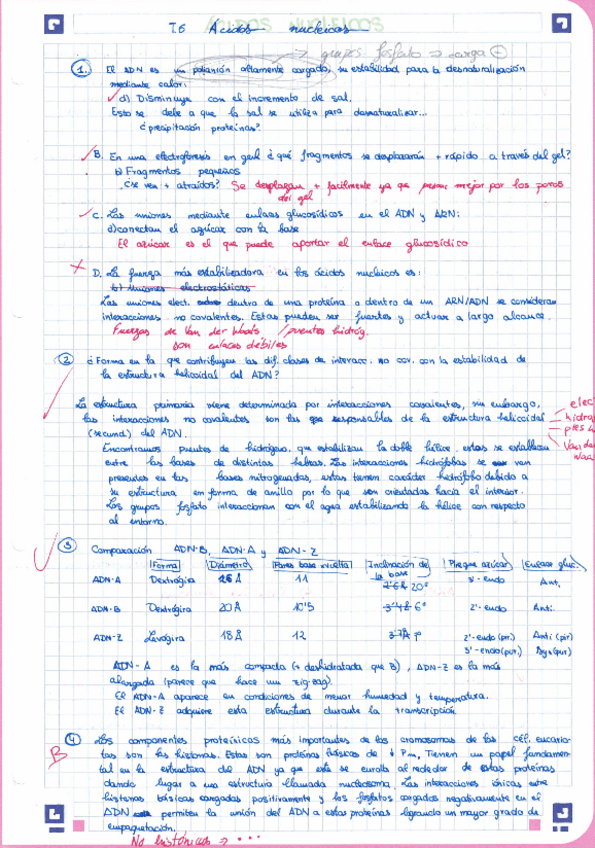 ÁCIDOS NUCLEICOS
T.6 Ácidos nucleicos
→ grupos fosfato ⇒ carga ⊖
1. El ADN es un polianión altamente cargado, su estabilidad para la desnaturalización
mediante calor:
d) Disminuye con el incremento de sal.
Esto se debe a que la sal se utiliza para desnaturalizar...
¿precipitación proteínas?
B. En una electroforesis en gel ¿qué fragmentos se desplazarán + rápido a través del gel?
b) Fragmentos pequeños
¿se ven + atraídos? Se desplazan + facilmente ya que pasan mejor por los poros
del gel
C. Las uniones mediante enlaces glucosídicos en el ADN y ARN:
d) conectan el azúcar con la base
El azúcar es el que puede aportar el enlace glucosídico
D. La fuerza más estabilizadora en los ácidos nucleicos es:
b) Uniones electrostáticas
Las uniones elect. dentro de una proteína o dentro de un ARN/ADN se consideran
interacciones no covalentes. Estas pueden ser fuertes y actuar a largo alcance.
Fuerzas de Van der Whats / puentes hidróg.
son enlaces débiles
2 ¿Forma en la que contribuyen las dif. clases de interacc. no cov. con la estabilidad de
la estructura helicoidal del ADN?
La estructura primaria viene determinada por interacciones covalentes, sin embargo,
las interacciones no covalentes son las que responsables de la estructura helicoidal
(secund.) del ADN.
elec
hidro
ptes
Van de
Encontramos puentes de hidrógeno, que estabilizan la doble hélice, estas se establecen
entre las bases de distintas hebras. Las interacciones hidrófobas se ven
presentes en las bases nitrogenadas, estas tienen carácter hidrófobo debido a
su estructura en forma de anillo por lo que son orientadas hacia el interior.
Los grupos fosfato interaccionan con el agua estabilizando la hélice con respecto
al entorno.
3 Comparación ADN-B, ADN-A y ADN-Z
Forma Diámetro Pares base vuelta Inclinación de la base Pliegue azúcar Enlace gluc.
ADN-A Dextrógira 26 Å 11 20° 3'-endo Ant.
ADN-B Dextrógira 20Å 10'5 6° 2'-endo Anti.
ADN-Z Levógira 18Å 12 7° 2'-endo (pir.) Anti (pir)
3'-endo (pur.) Syn (pur)
ADN-A es la más compacta (+ deshidratada que B), ADN-Z es la más
alargada (parece que hace un zig-zag).
El ADN-A aparece en condiciones de menor humedad y temperatura.
El ADN-Z adquiere esta estructura durante la transcripción
4 Los componentes proteínicos más importantes de los cromosomas de las cél. eucario-
tas son las histonas. Estas son proteínas básicas de ↓ Pm, Tienen un papel fundamen-
tal en la estructura del ADN ya que este se enrolla alrededor de estas proteínas
dando lugar a una estructura llamada nucleosoma. Las interacciones iónicas entre
histonas básicas cargadas positivamente y los fosfatos cargados negativamente en el
ADN permiten la unión del ADN a estas proteínas logrando un mayor grado de
empaquetación.
B
No histónicas → ...